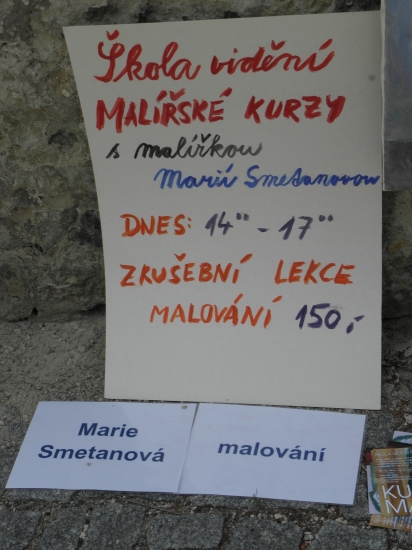 Škola vidění
MALÍŘSKÉ KURZY
s malířkou
Marií Smetanovou
DNES: 14⁰⁰ - 17⁰⁰
ZKUŠEBNÍ LEKCE
MALOVÁNÍ 150,-
Marie
Smetanová
malování
KU
MA